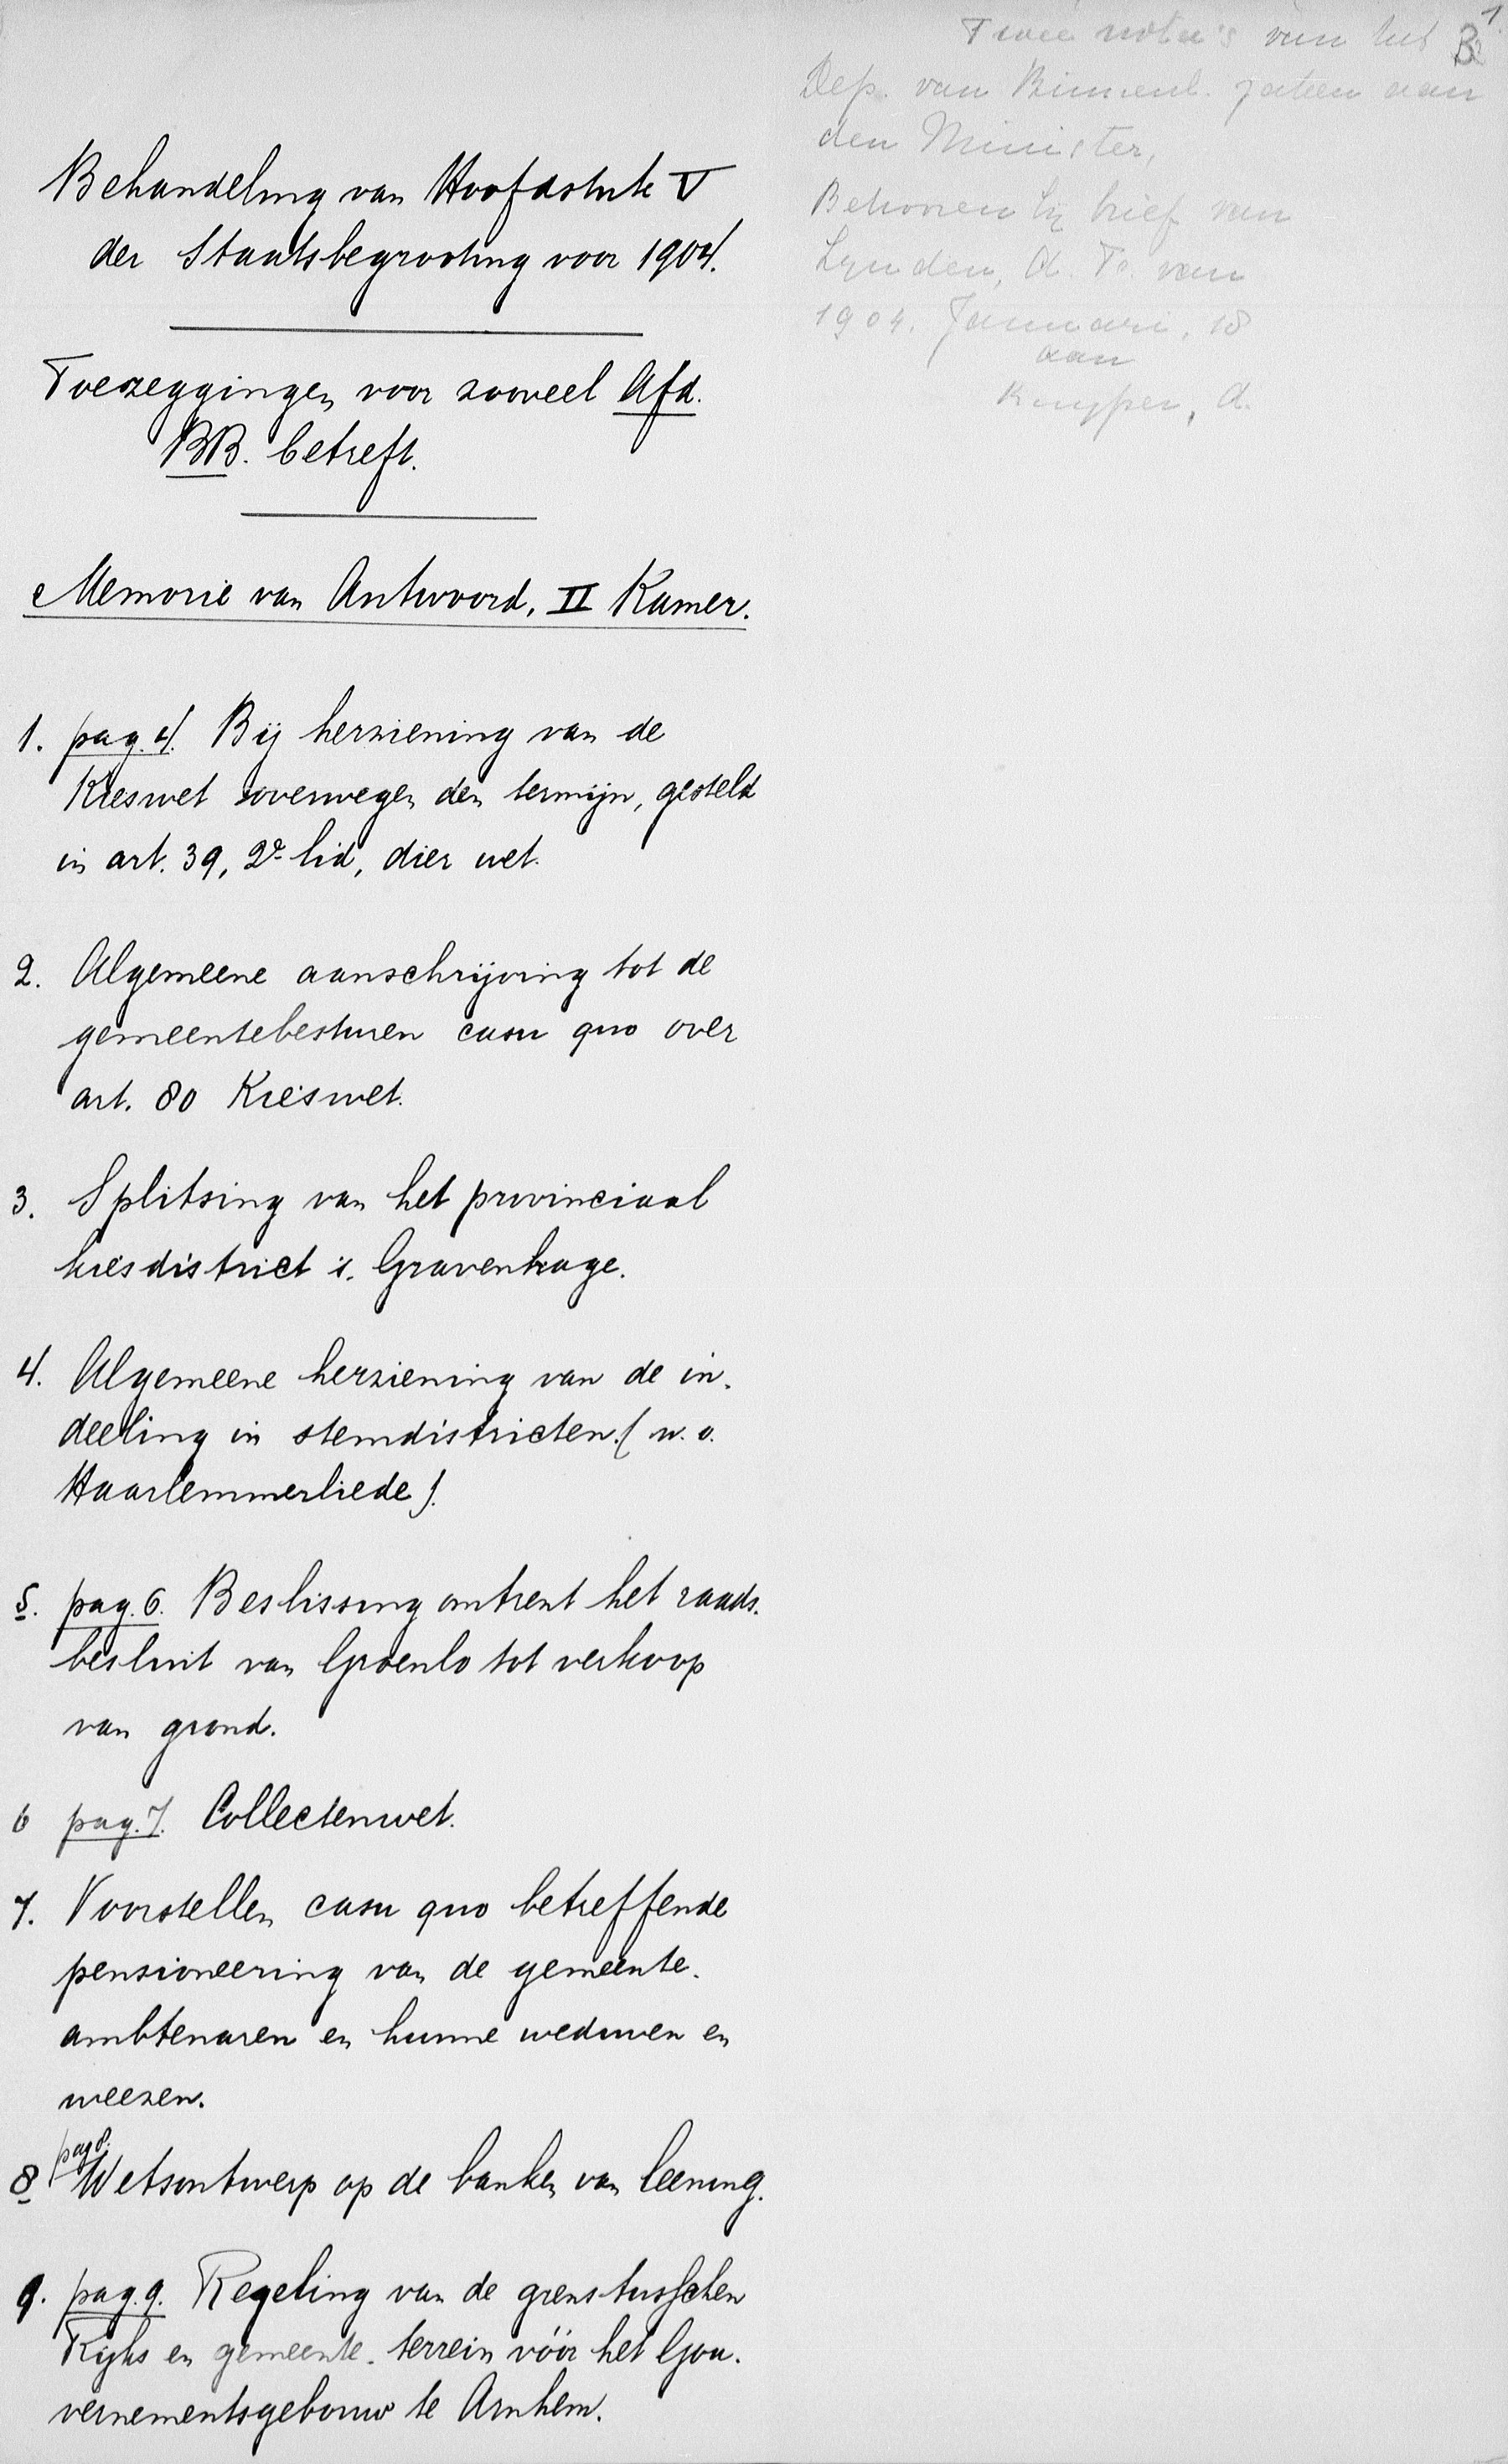 Twee nota's van het
B 1.
Dep. van Binnenl. zaken aan
den Minister,
Behooren bij brief van
Lynden, A. F. van
1904. Januari, 18
aan
Kuyper, A.
Behandeling van Hoofdstuk V
der Staatsbegrooting voor 1904.
Toezeggingen voor zooveel Afd.
BB. betreft.
Memorie van Antwoord, II Kamer.
1. pag. 4. Bij herziening van de
Kieswet overwegen den termijn, gesteld
in art. 39, 2e lid, dier wet.
2. Algemeene aanschrijving tot de
gemeentebesturen casu quo over
art. 80 Kieswet.
3. Splitsing van het provinciaal
kiesdistrict 's. Gravenhage.
4. Algemeene herziening van de in-
deeling in stemdistricten. (w.o.
Haarlemmerliede).
5. pag. 6. Beslissing omtrent het raads-
besluit van Groenlo tot verkoop
van grond.
6 pag. 7. Collectenwet.
7. Voorstellen casu quo betreffende
pensioneering van de gemeente-
ambtenaren en hunne weduwen en
weezen.
8 pag 8. Wetsontwerp op de banken van leening.
9. pag. 9. Regeling van de grens tusschen
Rijks en gemeente-terrein vóór het Gou-
vernementsgebouw te Arnhem.